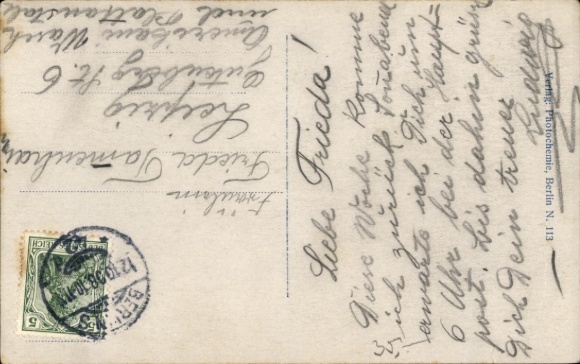 Liebe Frieda!
Diese Woche komme
ich zurück Sonabend
erwarte ich Dich um
6 Uhr bei der Haupt=
post. bis dahin grüßt
Dich Dein treuer
Ludwig
Verlag: Photochemie, Berlin N. 113
Fräulein
Frieda
Leipzig
Gutenberg 6
Amerikan. Wasch
und Plättanstalt
DEUTSCHES REICH
5 5
BERLIN
12.10